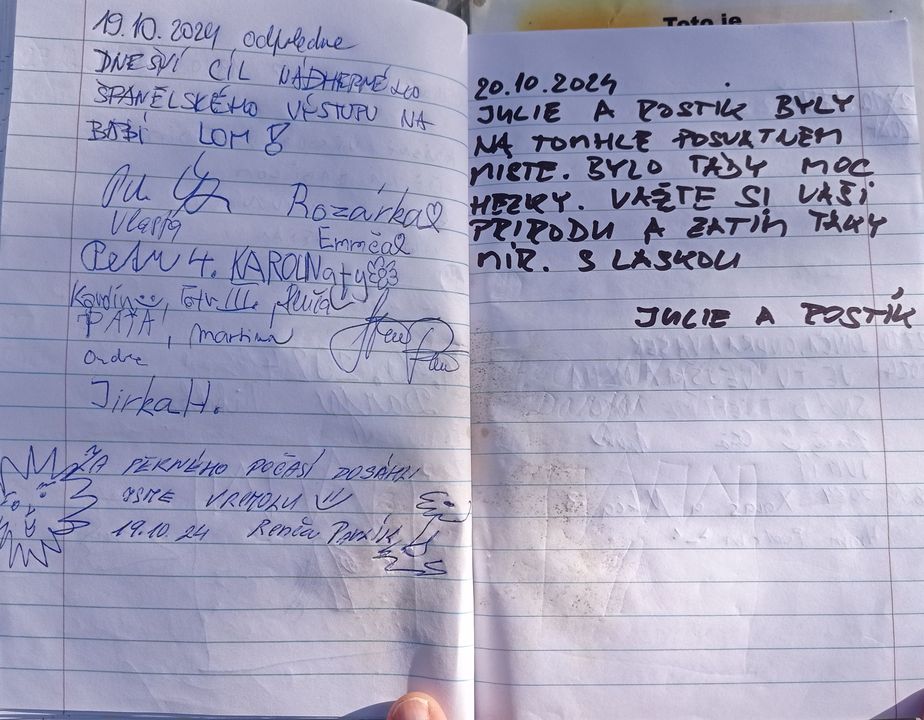 19.10.2024 odpoledne
DNEŠNÍ CÍL NÁDHERNÉHO
ŠPANĚLSKÉHO VÝSTUPU NA
BABÍ LOM!
Rozárka
Vlasta
Emmča
Petr 4. KAROLÍNa
Kavdín
PAŤA, martina
Ondra
Jirka H.
ZA PĚKNÉHO POČASÍ DOSÁHLI
JSME VRCHOLU
19.10.24 Renča Pavlík
Toto je
20.10.2024
JULIE A ROSTÍK BYLY
NA TOMHLE POSVATNEM
MISTE. BYLO TADY MOC
HEZKY. VAŽTE SI VAŠÍ
PŘÍRODU A ZATÍM TAKY
MÍR. S LASKOU
JULIE A ROSTÍK